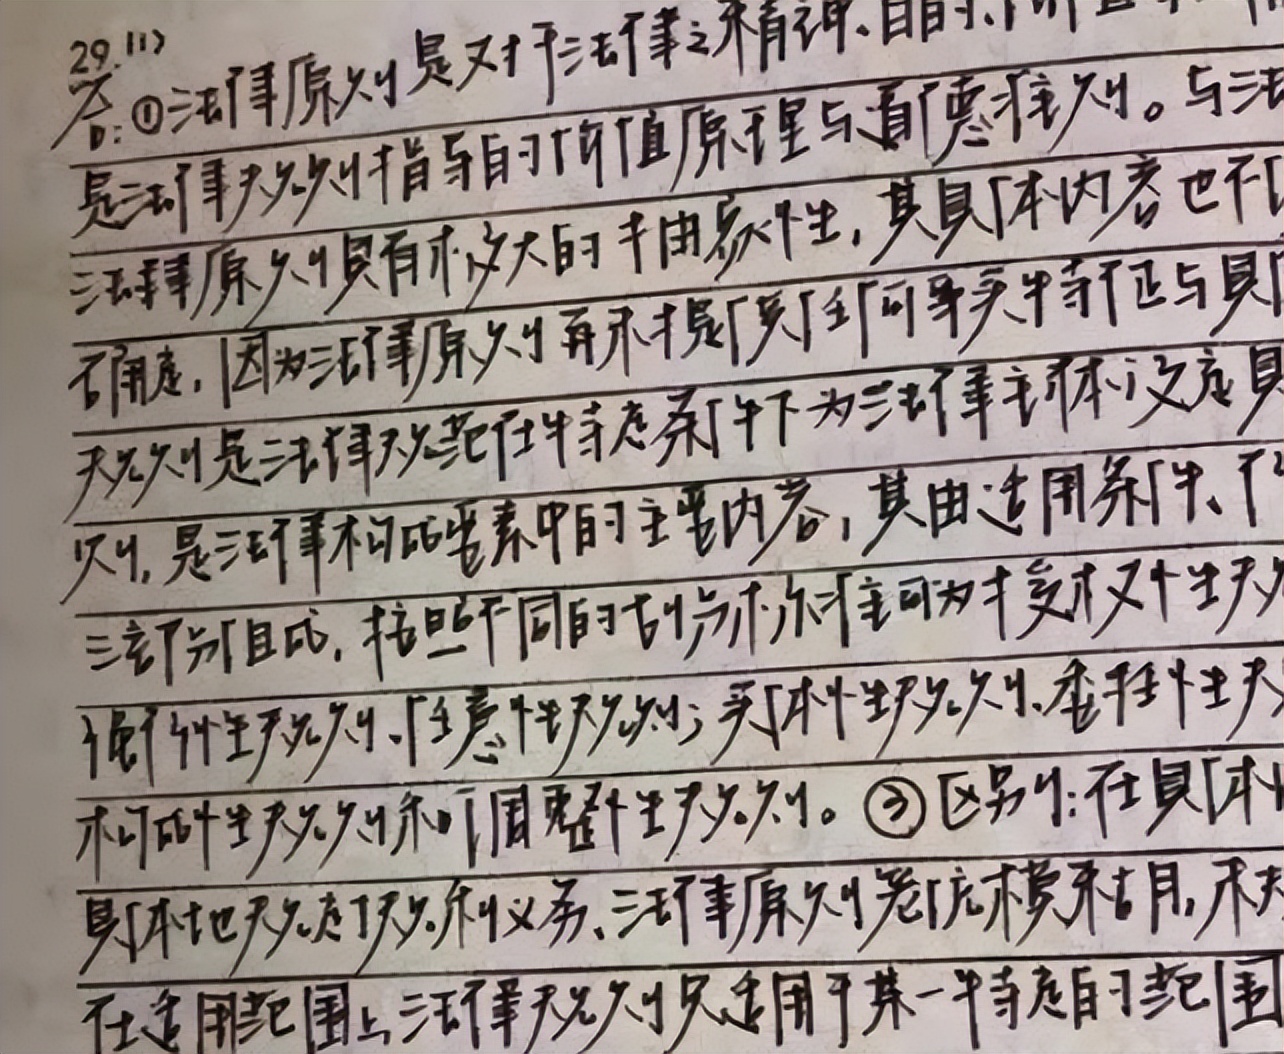 29.(1)
答:①法律原则是对于法律之精神、目的、价值
是法律规则背后的价值原理与道德准则。与法
法律原则具有极大的抽象性,其具体内容也不
确定,因为法律原则再未提供任何事实特征与具
规则是法律规范在特定条件下为法律主体设定具
则,是法律构成要素中的主要内容,其由适用条件、
三部分组成,按照不同的划分标准可为授权性规
强行性规则、任意性规则;实体性规则、委任性
构成性规则和调整性规则。③区别:在具体
具体地规定了权利义务、法律原则笼统模糊,
在适用范围上法律规则只适用于某一特定的范围